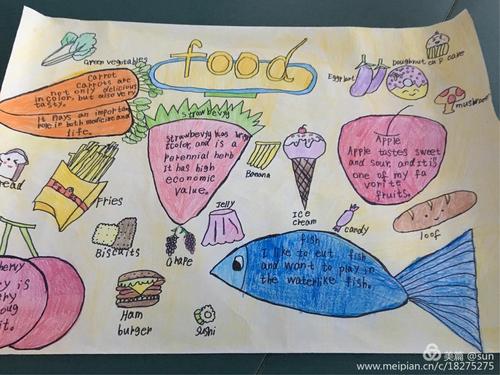 food
Green vegetables
Carrot
Carrots are
not only delicious
in color, but also very
tasty.
It plays an important
role in both medicine and
life.
Strawberry
Strawberry has bright
color, and is a
perennial herb
It has high
economic
value.
Eggplant
Doughnut
cup cake
mushroom
Apple
Apple tastes sweet
and sour, and it is
one of my fa
vorite
fruits.
Bread
Fries
Banana
Ice
cream
Jelly
candy
loof
Biscuits
Grape
Ham
burger
Sushi
fish
I like to eat fish
and want to play in
the water like fish.
美篇 @sun
www.meipian.cn/c/18275275